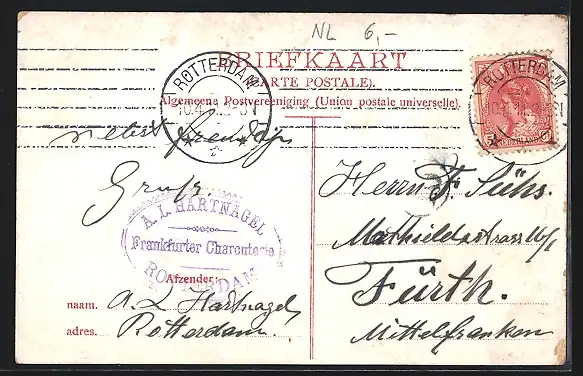 NL 6,-
BRIEFKAART
(CARTE POSTALE).
Algemeene Postvereeniging (Union postale universelle).
ROTTERDAM
ROTTERDAM
NEDERLAND
nebst
Gruss.
A. L. HARTNAGEL
Frankfurter Charcuterie
ROTTERDAM
Afzender:
naam. A. L. Hartnagel
adres. Rotterdam.
Herrn F. Sühs.
Mathildestrasse
Fürth.
Mittelfranken